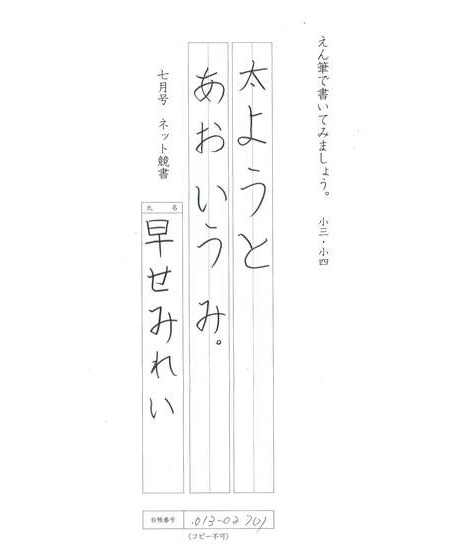 えん筆で書いてみましょう。 小三・小四
太ようと
あおいうみ。
七月号 ネット競書
氏 名
早せみれい
台帳番号 013-02701
(コピー不可)